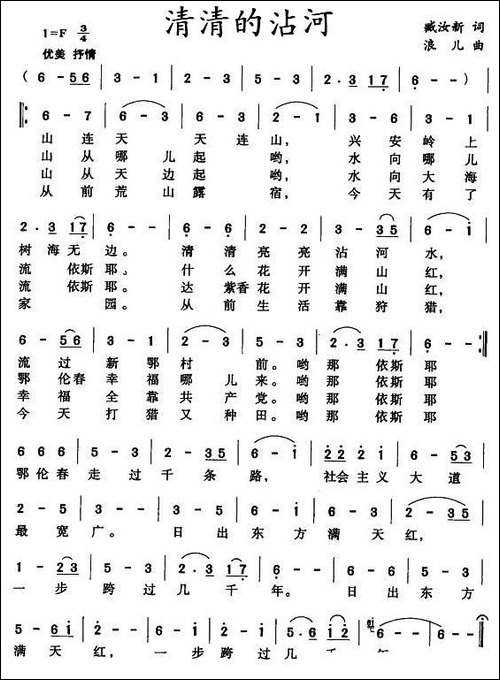 清清的沾河
1=F 3/4
优美 抒情
臧汝新 词
浪儿 曲
( 6 - 56 | 3 - 1 | 3 - 2 | 5 - 3 | 2 · 3 17 | 6 - - ) |
6 - 7 | 6 - 3 | 6 - 3 | 2 - 1 | 3 - 3 | 6 - 3 |
山 连 天 天 连 山, 兴 安 岭 上
山 从 哪 儿 起 哟, 水 向 哪 儿
山 从 天 边 起 哟, 水 向 大 海
从 前 荒 山 露 宿, 今 天 有 了
2 · 3 17 | 6 - - | 6 - 6 | 2 - 2 | 3 - 35 | 6 - i |
树 海 无 边。 清 清 亮 亮 沾 河 水,
流 依斯 耶。 什 么 花 开 满 山 红,
流 依斯 耶。 达 紫香 花 开 满 山 红,
家 园。 从 前 生 活 靠 狩 猎,
6 - 56 | 3 - 1 | 3 - 2 | 5 - 3 | 2 · 3 17 | 6 - - :||
流 过 新 鄂 村 前。哟 那 依斯 耶
鄂 伦春 幸 福 哪 儿 来。哟 那 依斯 耶
幸 福 全 靠 共 产 党。哟 那 依斯 耶
今 天 打 猎 又 种 田。哟 那 依斯 耶
6 6 6 | 5 - 3 | 2 - 35 | 6 - i | 22 2i | 5 - 56 |
鄂 伦 春 走 过 千 条 路, 社会 主义 大 道
2 - 5 | 3 - - | 3 - 3 | 6 - i | 2 - 35 | 6 - - |
最 宽 广。 日 出 东 方 满 天 红,
1 - 23 | 5 - 3 | 2 · 3 17 | 6 - - | 6 - 6 | 3 - 3 |
一 步 跨 过 几 千 年。 日 出 东 方
5 - 6i | 2 - - | 2 - 2 | 3 - 3 | 5 · 6 i2 | 6 - - | 6 - - ||
满 天 红, 一 步 跨 过 几 千